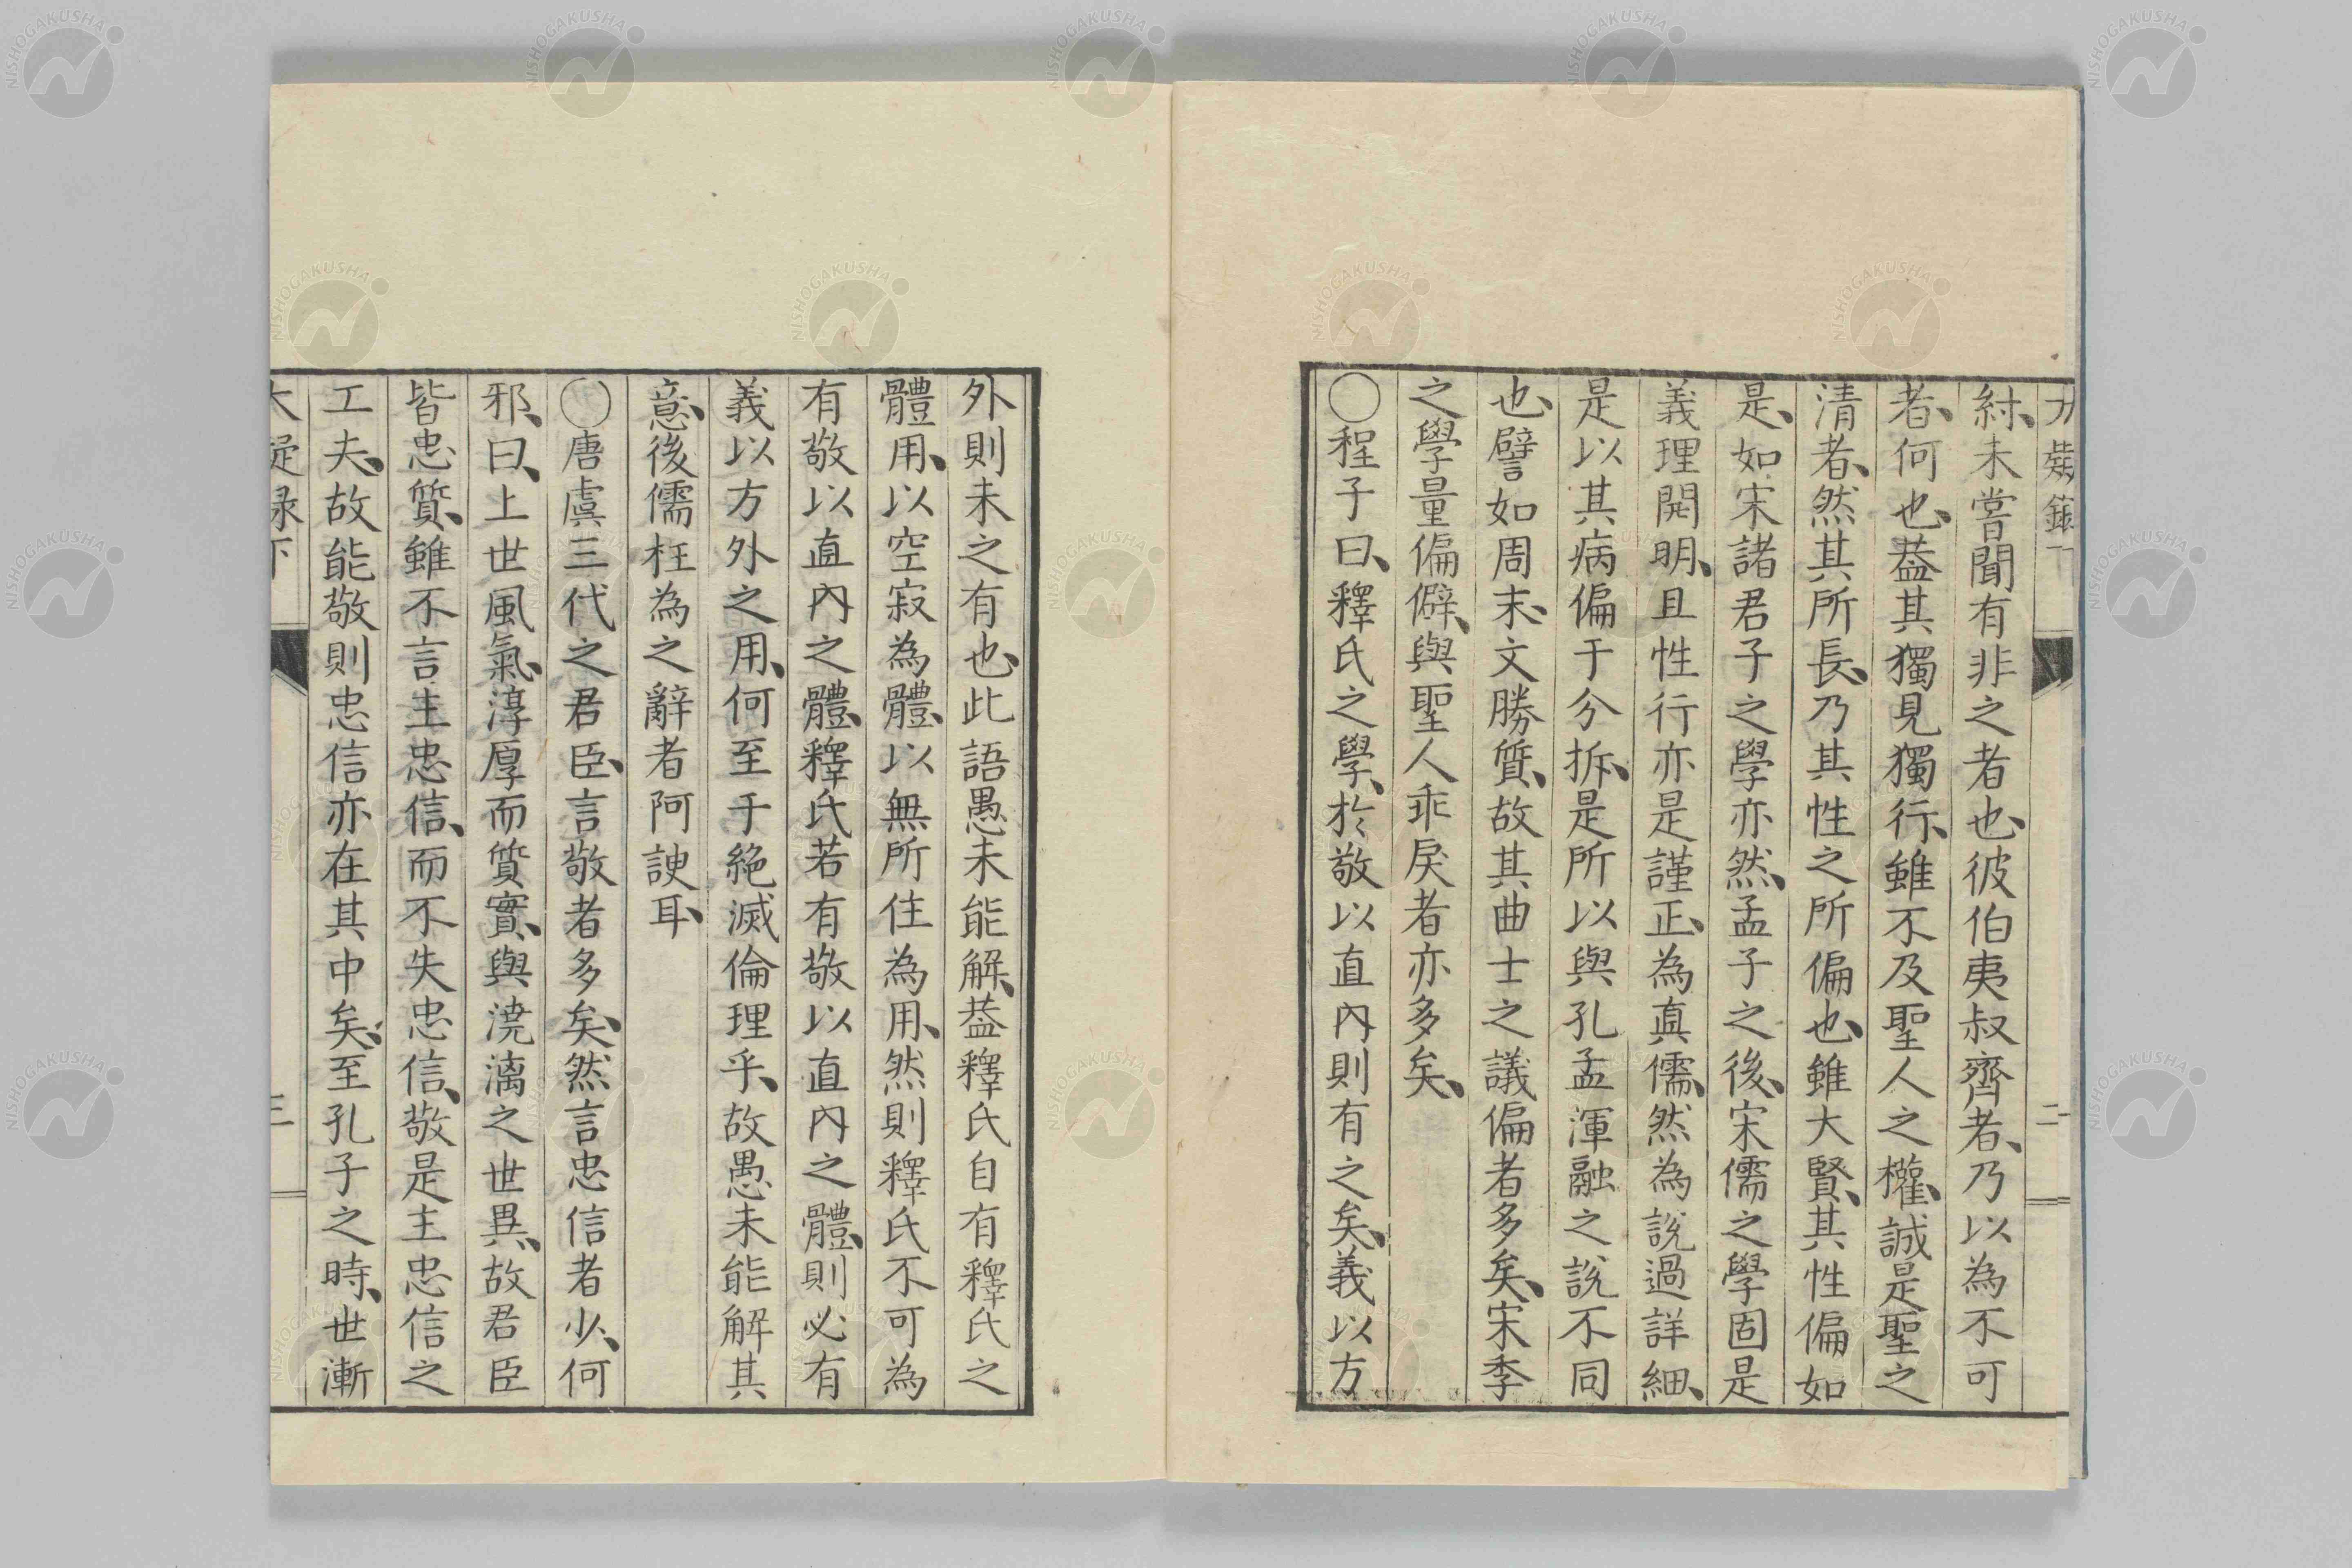 紂、未嘗聞有非之者也、彼伯夷叔齊者、乃以為不可
者、何也、葢其獨見獨行、雖不及聖人之權、誠是聖之
清者、然其所長、乃其性之所偏也、雖大賢、其性偏如
是、如宋諸君子之學亦然、孟子之後、宋儒之學固是
義理開明、且性行亦是謹正、為真儒、然為說過詳細、
是以其病偏于分拆、是所以與孔孟渾融之說不同
也、譬如周末、文勝質、故其曲士之議偏者多矣、宋季
之學量偏僻、與聖人乖戾者亦多矣、
○程子曰、釋氏之學、於敬以直內則有之矣、義以方
外則未之有也、此語愚未能解、葢釋氏自有釋氏之
體用、以空寂為體、以無所住為用、然則釋氏不可為
有敬以直內之體、釋氏若有敬以直內之體、則必有
義以方外之用、何至于絕滅倫理乎、故愚未能解其
意、後儒枉為之辭者阿諛耳、
○唐虞三代之君臣、言敬者多矣、然言忠信者少、何
邪、曰、上世風氣、淳厚而質實、與澆漓之世異、故君臣
皆忠質、雖不言主忠信、而不失忠信、敬是主忠信之
工夫、故能敬則忠信亦在其中矣、至孔子之時、世漸
大疑録下
三
NISHOGAKUSHA